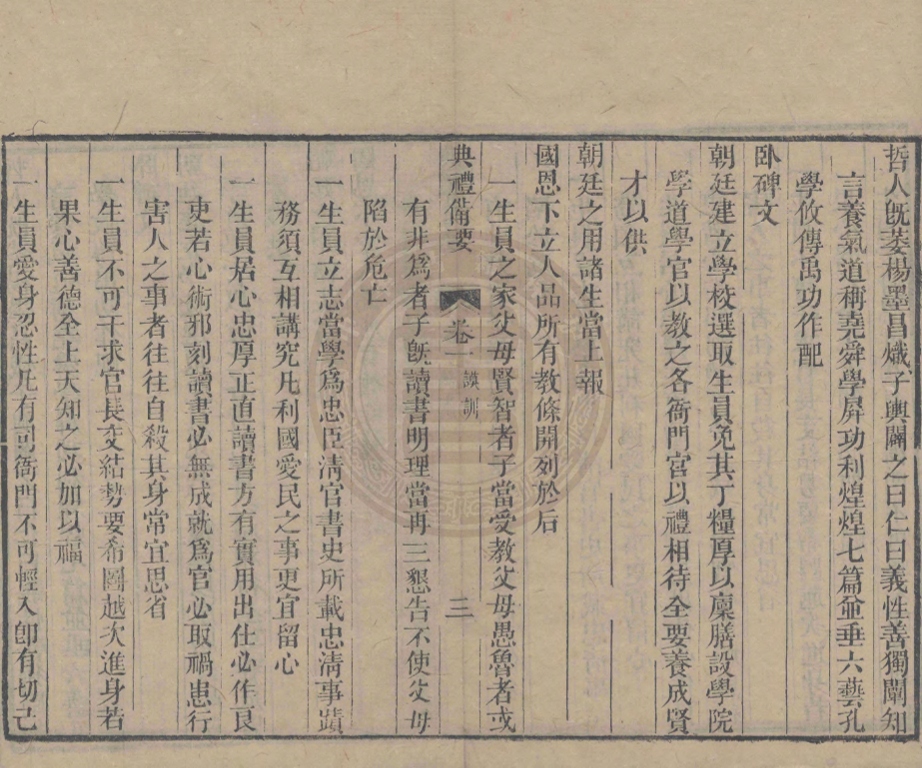 哲人既萎楊墨昌熾子輿闢之曰仁曰義性善獨闡知
言養氣道稱堯舜學屏功利煌煌七篇並垂六藝孔
學攸傳禹功作配
卧碑文
朝廷建立學校選取生員免其丁糧厚以廩膳設學院
學道學官以教之各衙門官以禮相待全要養成賢
才以供
朝廷之用諸生當上報
國恩下立人品所有教條開列於后
一生員之家父母賢智者子當受教父母愚魯者或
典禮備要 卷一 謨訓 三
有非爲者子旣讀書明理當再三懇告不使父母
陷於危亡
一生員立志當學爲忠臣清官書史所載忠清事蹟
務須互相講究凡利國愛民之事更宜留心
一生員居心忠厚正直讀書方有實用出仕必作良
吏若心術邪刻讀書必無成就爲官必取禍患行
害人之事者往往自殺其身常宜思省
一生員不可干求官長交結勢要希圖越次進身若
果心善德全上天知之必加以福
一生員愛身忍性凡有司衙門不可輕入卽有切己